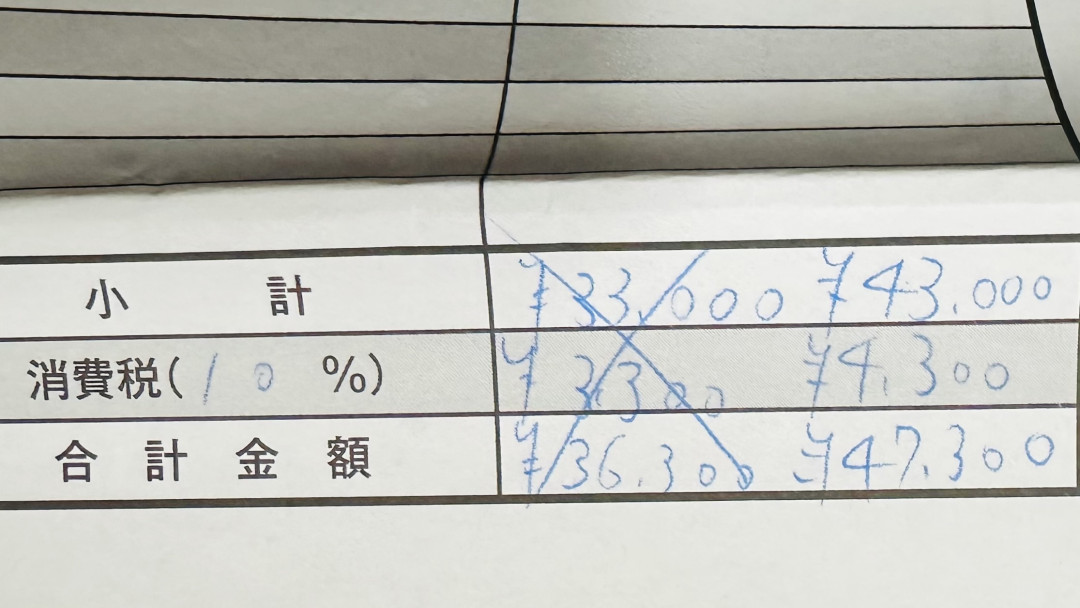 小計 ¥33.000 ¥43.000
消費税(10%) ¥3.300 ¥4.300
合計金額 ¥36.300 ¥47.300